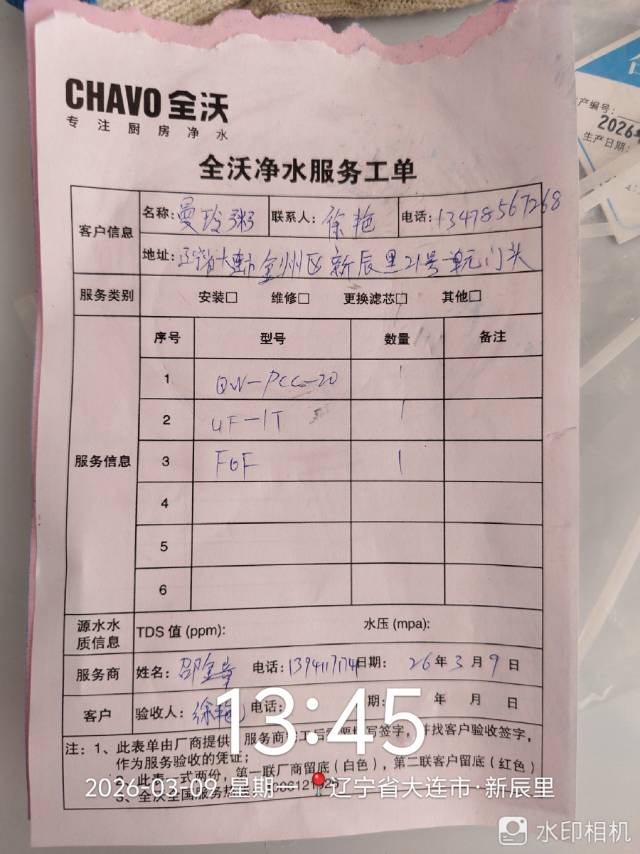 CHAVO 全沃
专注厨房净水
全沃净水服务工单
客户信息 名称: 曼玲粥 联系人: 徐艳 电话: 13478567268
地址: 辽宁省大连市金州区新辰里21号单元门头
服务类别 安装□ 维修□ 更换滤芯□ 其他□
服务信息 序号 型号 数量 备注
1 QW-PCC-20 1
2 UF-1T 1
3 FGF 1
4
5
6
源水水质信息 TDS 值 (ppm): 水压 (mpa):
服务商 姓名: 电话: 日期: 26年3月9日
客户 验收人: 徐艳 电话: 期: 年 月 日
注: 1、此表单由厂商提供 服务商 写签字, 并找客户验收签字,
作为服务验收的凭证;
2、此表一式两份, 第一联厂商留底 (白色), 第二联客户留底 (红色)
3、全沃全国服务热
13:45
2026-03-09 星期一 辽宁省大连市·新辰里
水印相机
产编号:
2026
生产日期: